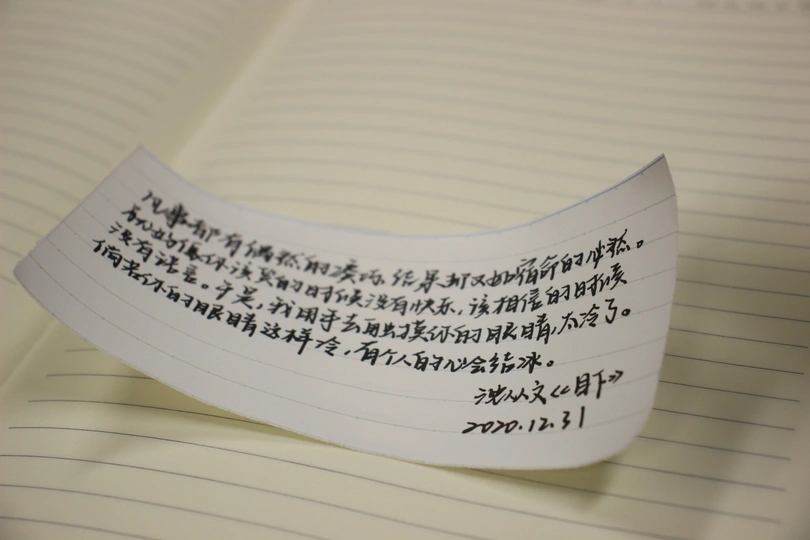 凡事都有偶然的凑巧,结果却又如宿命的必然。
就好像你该笑的时候没有快乐,该相信的时候
没有。于是,我用手去摸你的眼睛,太冷了。
倘若你的眼睛这样冷,有个人的心会结冰。
沈从文《月下》
2020.12.31